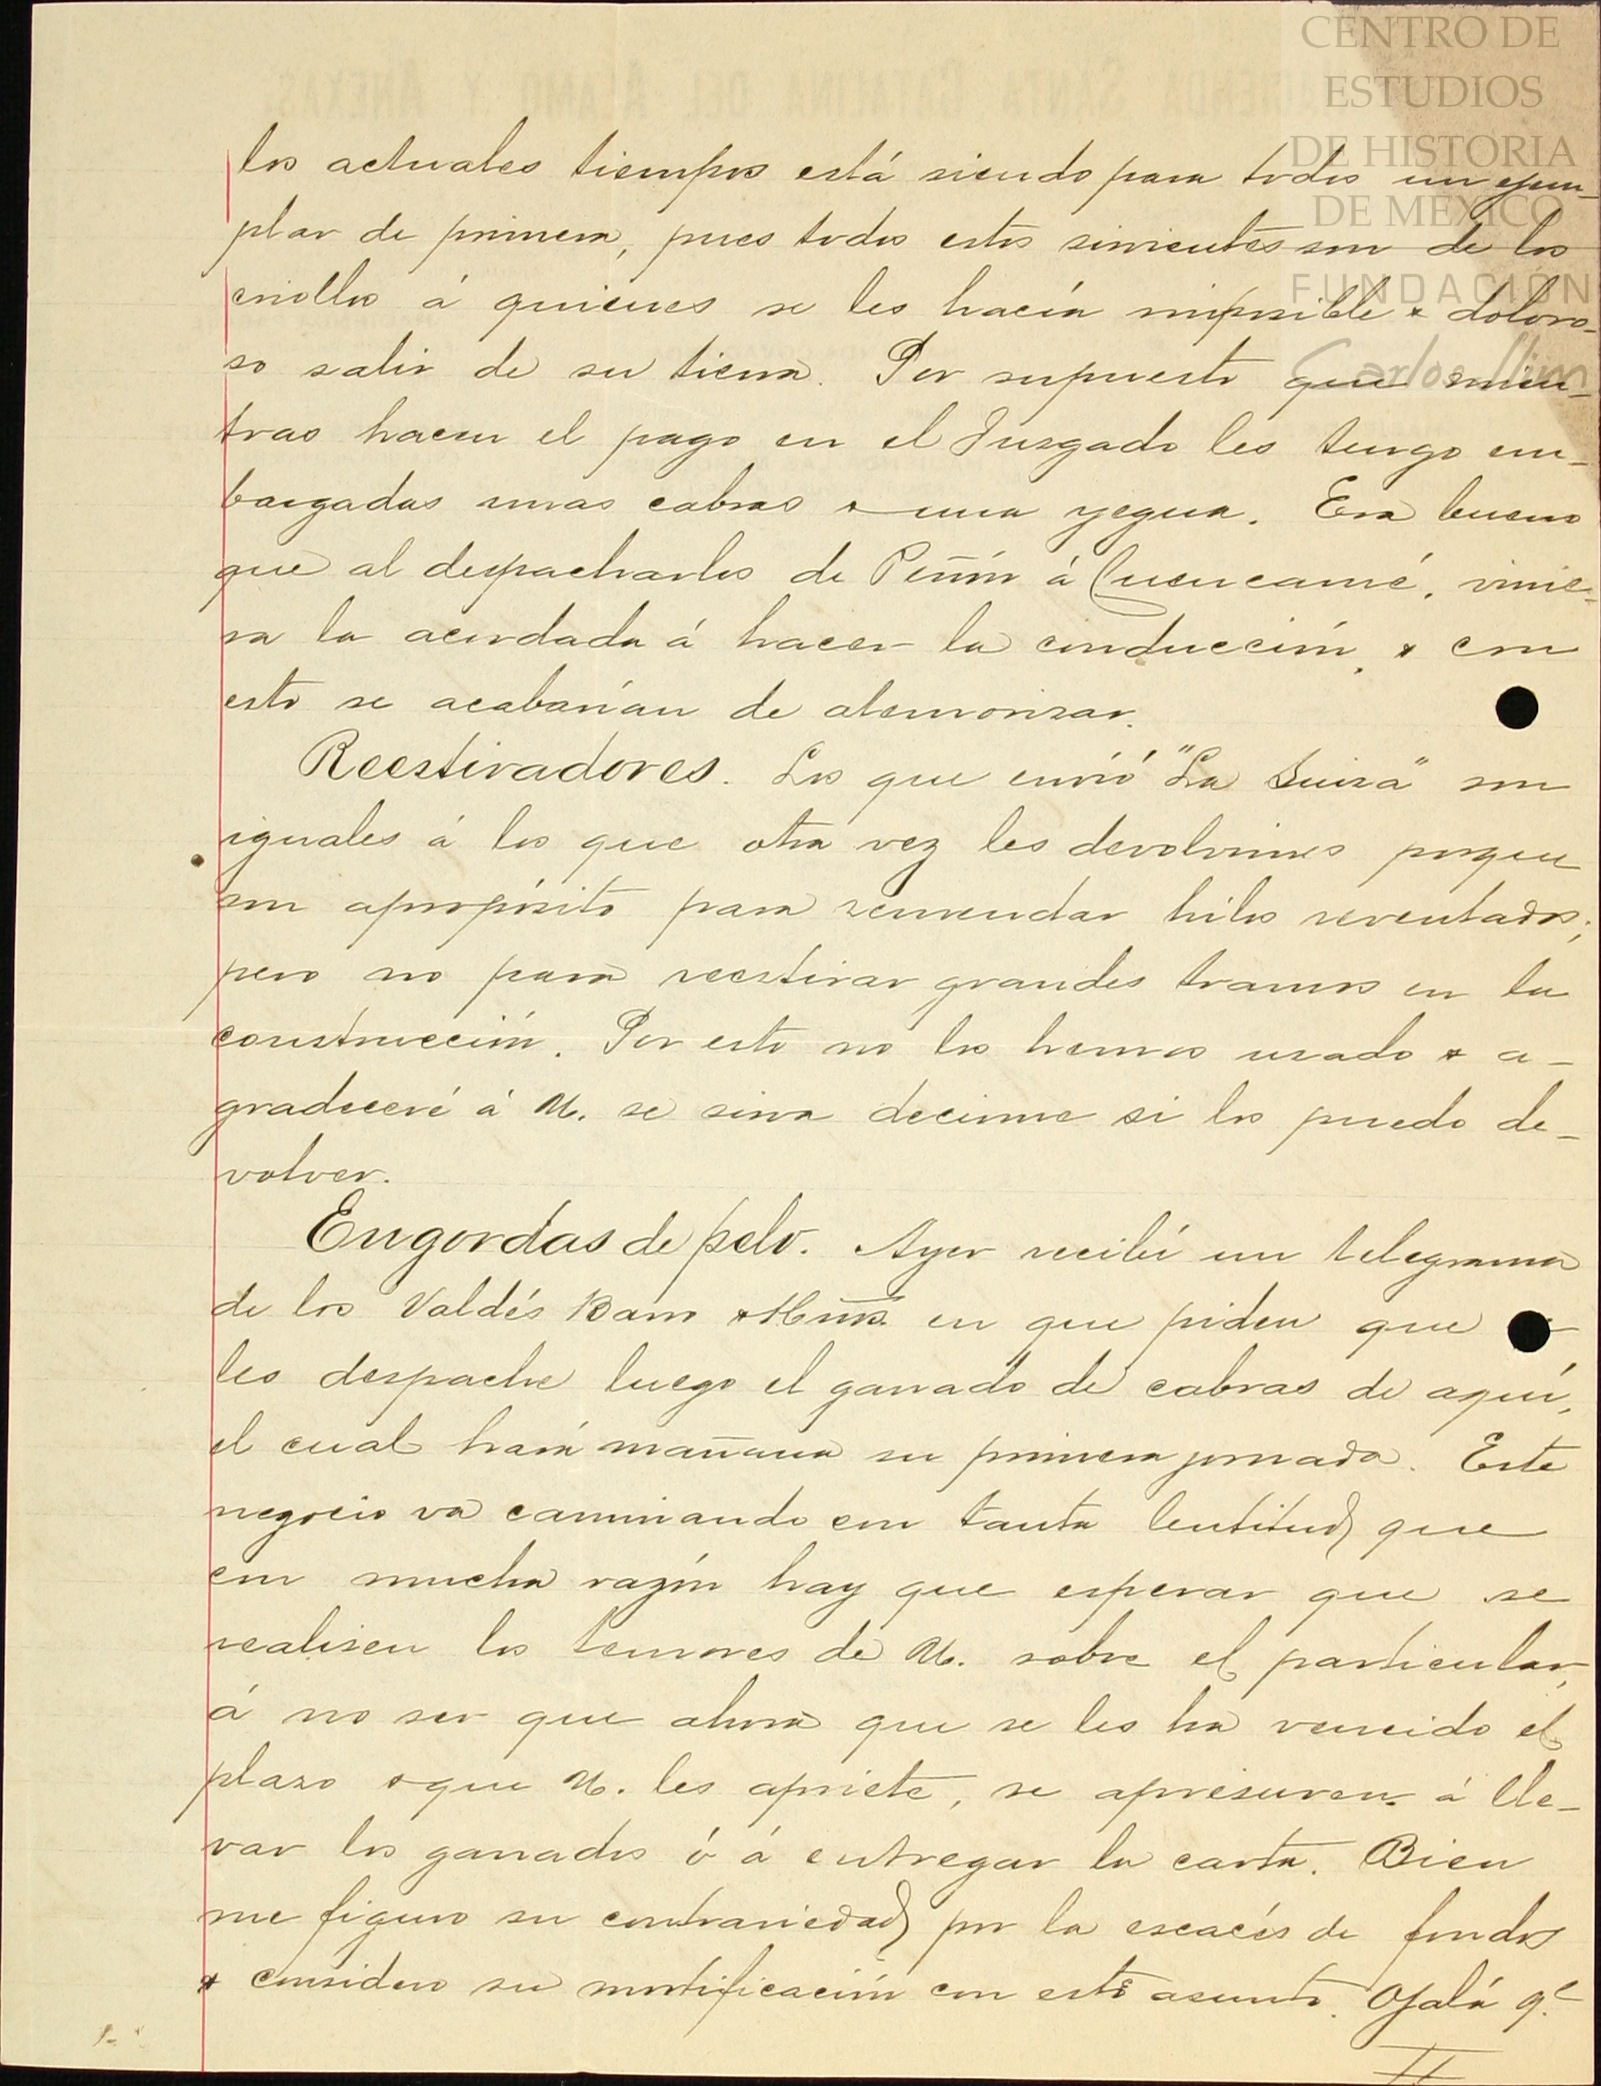 CENTRO DE
ESTUDIOS
DE HISTORIA
DE MÉXICO
FUNDACIÓN
Carlos Slim
los actuales tiempos está siendo para todos un ejem-
plar de primera, pues todos estos sirvientes son de los
criollos á quienes se les hacía imposible & doloro-
so salir de su tierra. Por supuesto que mien-
tras hacen el pago en el Juzgado les tengo em-
bargadas unas cabras & una yegua. Era bueno
que al despacharlos de Peñón á Cuencamé, vinie-
ra la acordada á hacer la conducción, & con
esto se acabarían de atemorizar.
Reestiradores. Los que envió "La Suiza" son
iguales á los que otra vez les devolvimos porque
son apropósito para remendar hilos reventados;
pero no para reestirar grandes tramos en la
construcción. Por esto no los hemos usado & a-
gradeceré á U. se sirva decirme si los puedo de-
volver.
Engordas de pelo. Ayer recibí un telegrama
de los Valdés Barro & Hnos. en que piden que
les despache luego el ganado de cabras de aquí,
el cual hará mañana su primera jornada. Este
negocio va caminando con tanta lentitud que
con mucha razón hay que esperar que se
realisen los temores de U. sobre el particular,
á no ser que ahora que se les ha vencido el
plazo & que U. les apriete, se apresuren á lle-
var los ganados ó á entregar la carta. Bien
me figuro su contrariedad por la escacés de fondos
& considero su mortificación con este asunto. Ojalá q.e